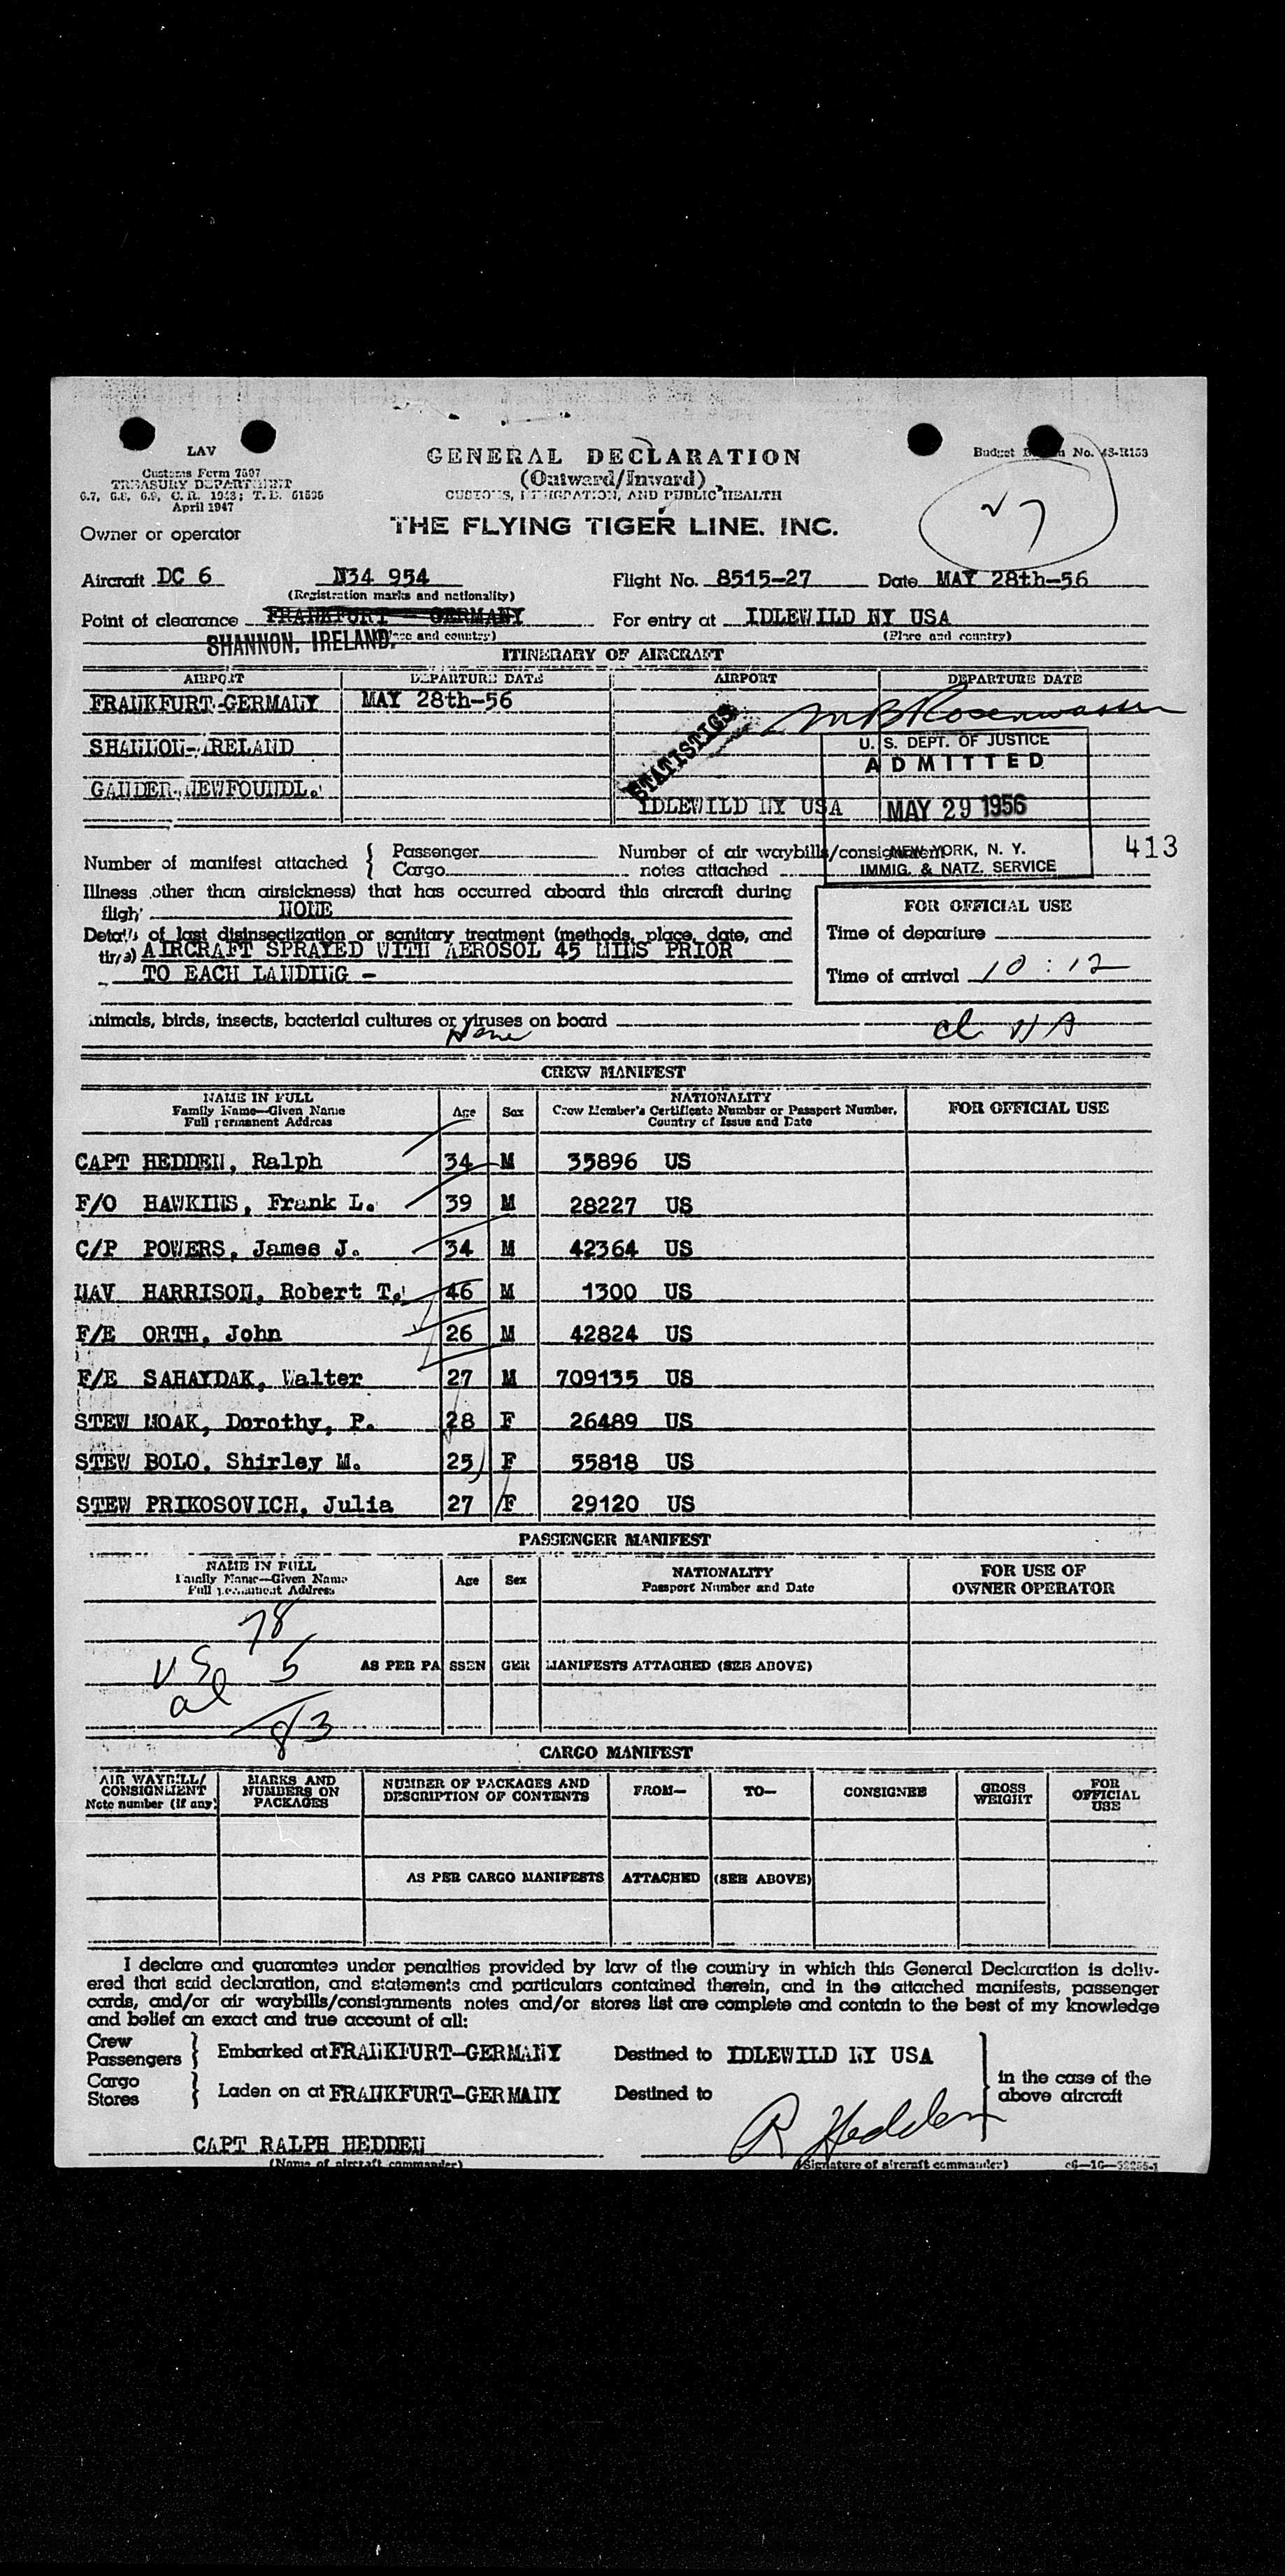 LAV
Customs Form 7507
TREASURY DEPARTMENT
6.7, 6.8, 6.9, C. R. 1943; T. D. 51505
April 1947
GENERAL DECLARATION
(Outward/Inward)
CUSTOMS, IMMIGRATION, AND PUBLIC HEALTH
Budget No. 43-R153
THE FLYING TIGER LINE. INC.
Owner or operator
Aircraft DC 6 N34 954 Flight No. 8515-27 Date MAY 28th-56
(Registration marks and nationality)
Point of clearance FRANKFURT - GERMANY For entry at IDLEWILD NY USA
SHANNON, IRELAND. and country) (Place and country)
ITINERARY OF AIRCRAFT
AIRPORT DEPARTURE DATE AIRPORT DEPARTURE DATE
FRANKFURT-GERMANY MAY 28th-56
MB Rosenwasser
SHANNON-IRELAND
STATISTICS
U. S. DEPT. OF JUSTICE
ADMITTED
GANDER-NEWFOUNDL.
IDLEWILD NY USA MAY 29 1956
NEW YORK, N. Y.
IMMIG. & NATZ. SERVICE
413
Number of manifest attached { Passenger Number of air waybills/consignment
Cargo notes attached
Illness other than airsickness) that has occurred aboard this aircraft during
fligh' NONE
Details of last disinsectization or sanitary treatment (methods, place, date, and
AIRCRAFT SPRAYED WITH AEROSOL 45 MINS PRIOR
TO EACH LANDING -
FOR OFFICIAL USE
Time of departure
Time of arrival 10:12
nimals, birds, insects, bacterial cultures or viruses on board
None
CREW MANIFEST
NAME IN FULL
Family Name—Given Name
Full permanent Address
Age Sex
NATIONALITY
Crew Member's Certificate Number or Passport Number,
Country of Issue and Date
FOR OFFICIAL USE
CAPT HEDDEN, Ralph 34 M 35896 US
F/O HAWKINS, Frank L. 39 M 28227 US
C/P POWERS, James J. 34 M 42364 US
NAV HARRISON, Robert T. 46 M 1300 US
F/E ORTH, John 26 M 42824 US
F/E SAHAYDAK, Walter 27 M 709135 US
STEW MOAK, Dorothy, P. 28 F 26489 US
STEW BOLO, Shirley M. 25 F 55818 US
STEW PRIKOSOVICH, Julia 27 F 29120 US
PASSENGER MANIFEST
NAME IN FULL
Family Name—Given Name
Full permanent Address
Age Sex
NATIONALITY
Passport Number and Date
FOR USE OF
OWNER OPERATOR
78
5
AS PER PASSENGER MANIFESTS ATTACHED (SEE ABOVE)
83
CARGO MANIFEST
AIR WAYBILL/
CONSIGNMENT
Note number (if any)
MARKS AND
NUMBERS ON
PACKAGES
NUMBER OF PACKAGES AND
DESCRIPTION OF CONTENTS
FROM— TO— CONSIGNEE
GROSS
WEIGHT
FOR
OFFICIAL
USE
AS PER CARGO MANIFESTS ATTACHED (SEE ABOVE)
I declare and guarantee under penalties provided by law of the country in which this General Declaration is deliv-
ered that said declaration, and statements and particulars contained therein, and in the attached manifests, passenger
cards, and/or air waybills/consignments notes and/or stores list are complete and contain to the best of my knowledge
and belief an exact and true account of all:
Crew
Passengers } Embarked at FRANKFURT-GERMANY Destined to IDLEWILD NY USA
Cargo
Stores } Laden on at FRANKFURT-GERMANY Destined to
in the case of the
above aircraft
CAPT RALPH HEDDEN R Hedden
(Name of aircraft commander) (Signature of aircraft commander)